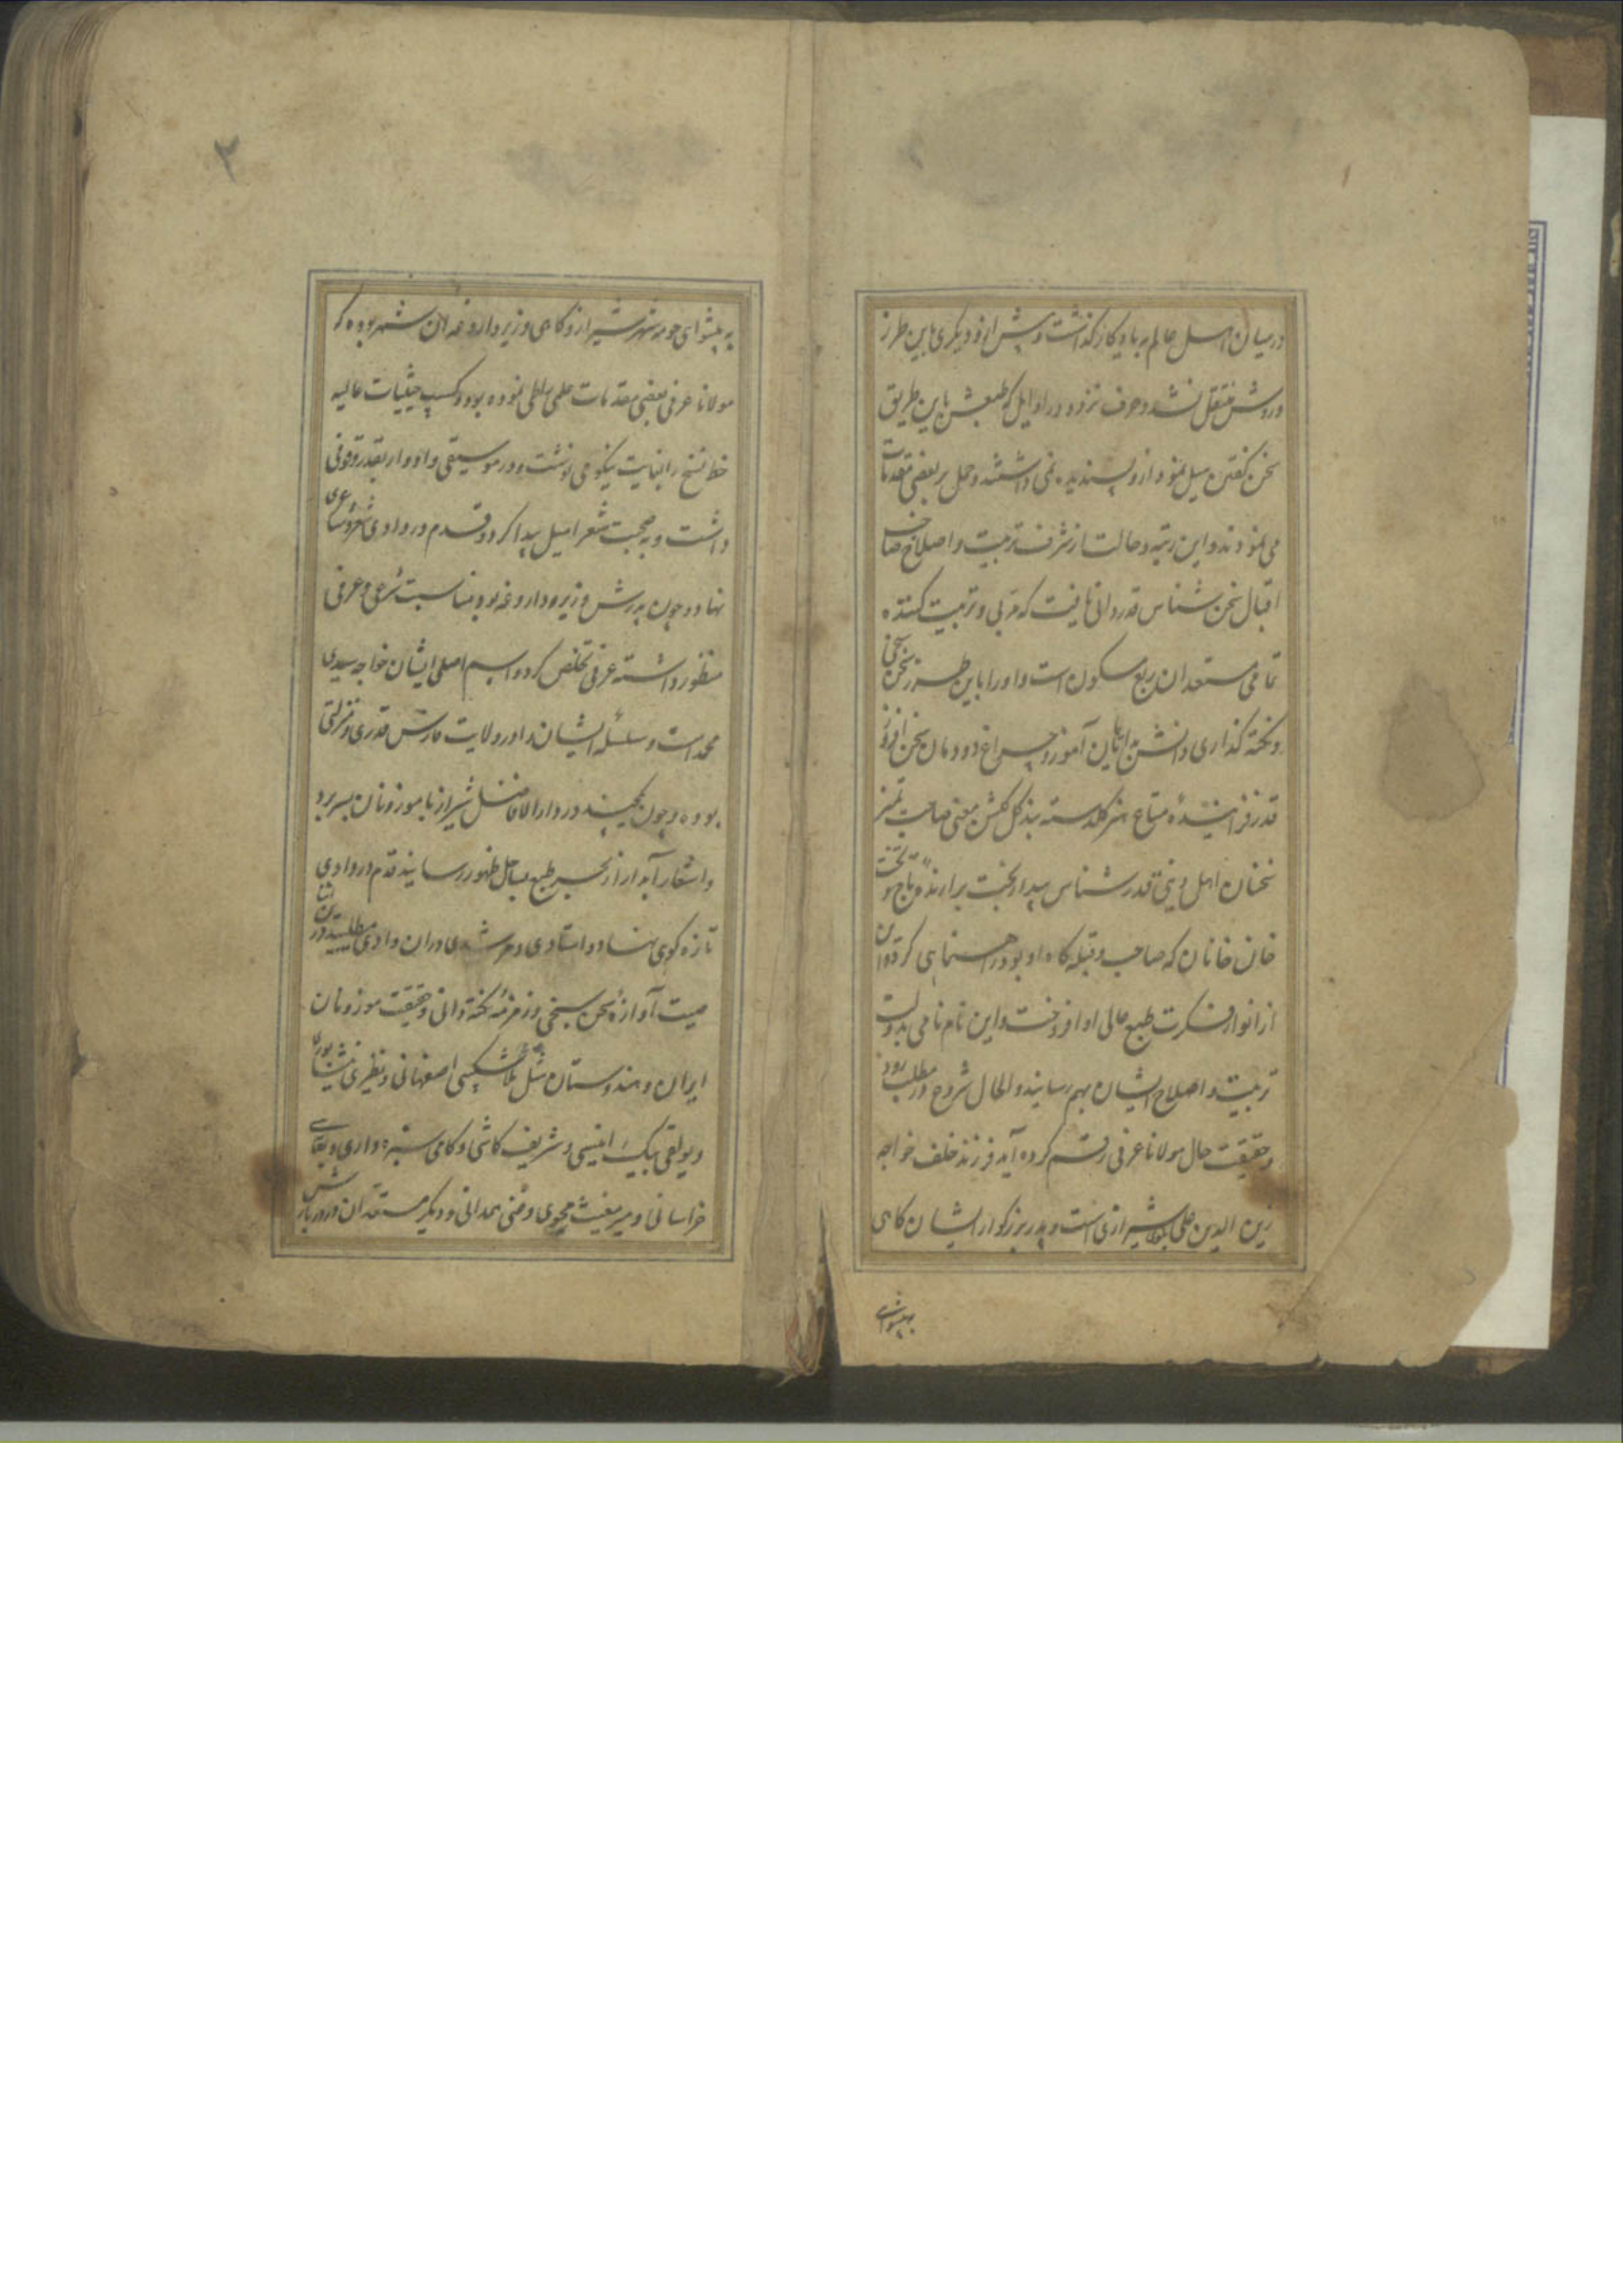 در میان اهل عالم به یادگار گذاشت و پیش ازو دیگری باین طرز
و روش منتقل نشد و حرف نزد و در اوایل که طبعش باین طریق
سخن گفتن میل نمود ازو پسندیده نمی داشتند و حمل بر بعضی مقدمات
می نمودند و این رتبه و حالت از شرف تربیت و اصلاح صاحب
اقبال سخن شناس قدردانی یافت که مربی و تربیت کننده
تمامی مستعدان ربع مسکون است و او را باین طرز سخن سنجی
و نکته گذاری دانش آموز و چراغ دودمان سخن افروز
قدر فزاینده متاع هنر گلدسته بند گل گلشن معنی صاحب تمیز
سخنان اهل قدرشناس بیدار بخت برازنده تاج و تخت
خان خانان که صاحب و قبله گاه او بود راهنمایی کرد
از انوار فکرت طبع عالی او افروخت و این نام نامی بدولت
تربیت و اصلاح ایشان بهم رسانید والحال شروع در مطلب رود
و حقیقت حال مولانا عرفی رقم کرده آید فرزند خلف خواجه
زین الدین علی شیرازی است و پدر بزرگوار ایشان گاهی
به پیشوای
۲
به پیشوای حومه شهر شیراز و گاهی وزیر داروغه آن شهر بوده که
مولانا عرفی بعضی مقدمات علمی نموده بود و کسب حیثیات عالیه
خط نسخ را بغایت نیکو می نوشت و در موسیقی و ادوار بقدر وقوفی
داشت و به صحبت شعرا میل پیدا کرد و قدم در وادی شعر و شاعری
نهاد و چون پدرش وزیر داروغه بود مناسبت شرعی و عرفی
منظور داشته عرفی تخلص کرد و اسم اصلی ایشان خواجه سیدی
محمد است و سلسله ایشان در ولایت فارس قدری و منزلتی
بوده و چون چند در دارالافاضل شیراز با موزونان بسر برد
و اشعار آبدار از بحر طبع بساحل ظهور رسانید قدم در وادی
تازه گوی نهاد و استادی و مرشدی در آن وادی می طلبید در آن اثنا
صیت آوازه سخن سنجی و زمزمه نکته دانی و حقیقت موزونان
ایران و هندوستان مثل ملا شکیبی اصفهانی و نظیری نیشابوری
و یولقلی بیک انیسی و شریف کاشی و کامی سبزواری و بقای
خراسانی و میر مغیث محوی و فنی همدانی و دیگر مستعدان و دربارش